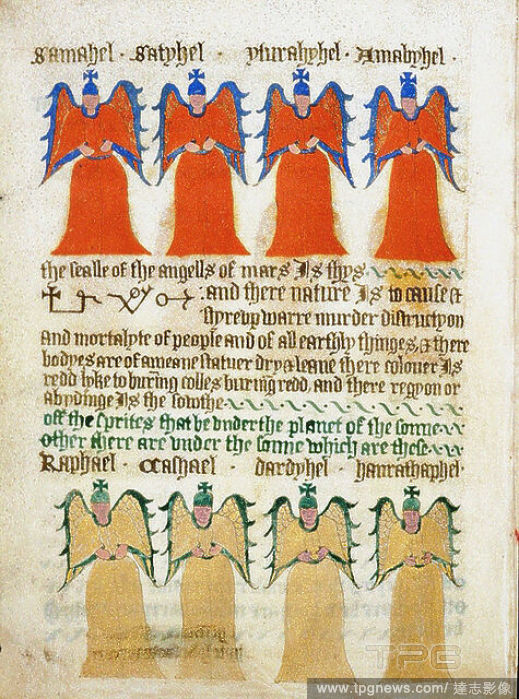 Samahel · Satyhel · yturahyhel · Amabyhel ·
the sealle of the angells of mars Is thys
:and there nature Is to cause &
styrevp warre murder distructyon
and mortalyte of people and of all earthly thinges, & there
bodyes are of a meane statuer dry & leane there colouer Is
redd lyke to buring colles buring redd, and there regyon or
abydinge Is the sowthe
off the sprites that be vnder the planet of the sonne
other there are vnder the sonne which are these
Raphael · Cashael · dardyhel · hanrathaphel·
TPG
www.tpgnews.com/ 達志影像